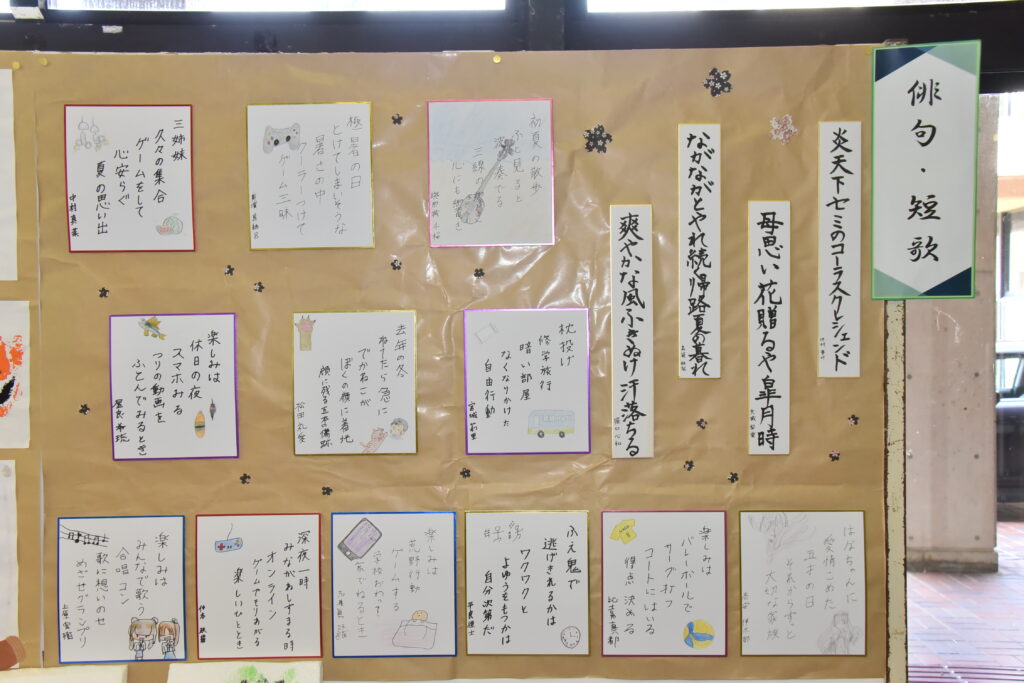 俳句・短歌
炎天下セミのコーラスクレシェンド
母思い花贈るや皐月時
ながながとやれ続く帰路夏の暮れ
爽やかな風ふきぬけ汗落ちる
初夏の散歩
ふと見ると
奏でる
三線の
心にも
極暑の日
とけてしまいそうな
暑さの中
クーラーつけて
ゲーム三昧
三姉妹
久々の集合
ゲームをして
心安らぐ
夏の思い出
中村真菜
枕投げ
修学旅行
暗い部屋
なくなりかけた
自由行動
宮城莉里
去年の冬
ねてたら急に
でかねこが
ぼくの顔に着地
顔に残る五本の傷跡
楽しみは
休日の夜
スマホみる
つりの動画を
ふとんでみるとき
はなちゃんに
愛情こめた
五才の日
それからずっと
大切な家族
楽しみは
バレーボールで
サーブ打つ
コートにはいる
得点決める
ふえ鬼で
逃げきれるかは
ワクワクと
よゆうをもつかは
自分次第だ
楽しみは
荒野行動
ゲームする
学校おわって
家でねるとき
深夜一時
みながねしずまる時
オンライン
ゲームでもりあがる
楽しいひととき
楽しみは
みんなで歌う
合唱コン
歌に想いのせ
めざせグランプリ